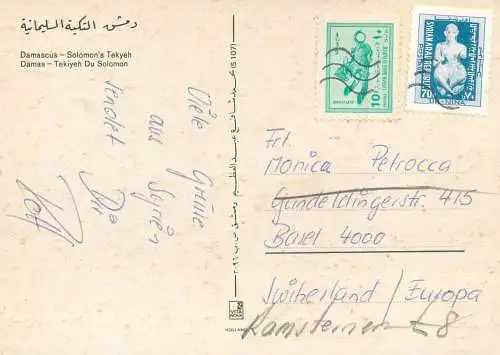 دمشق - التكية السليمانية
Damascus – Solomon's Tekyeh
Damas – Tekiyeh Du Solomon
Viele Grüsse
aus
Syrien
sendet
Dir
Rolf
(S 1107)
10
SYRIAN ARAB REPUBLIC
70
Frl.
Monica Petrocca
Gundeldingerstr. 415
Basel 4000
Switherland / Europa
8